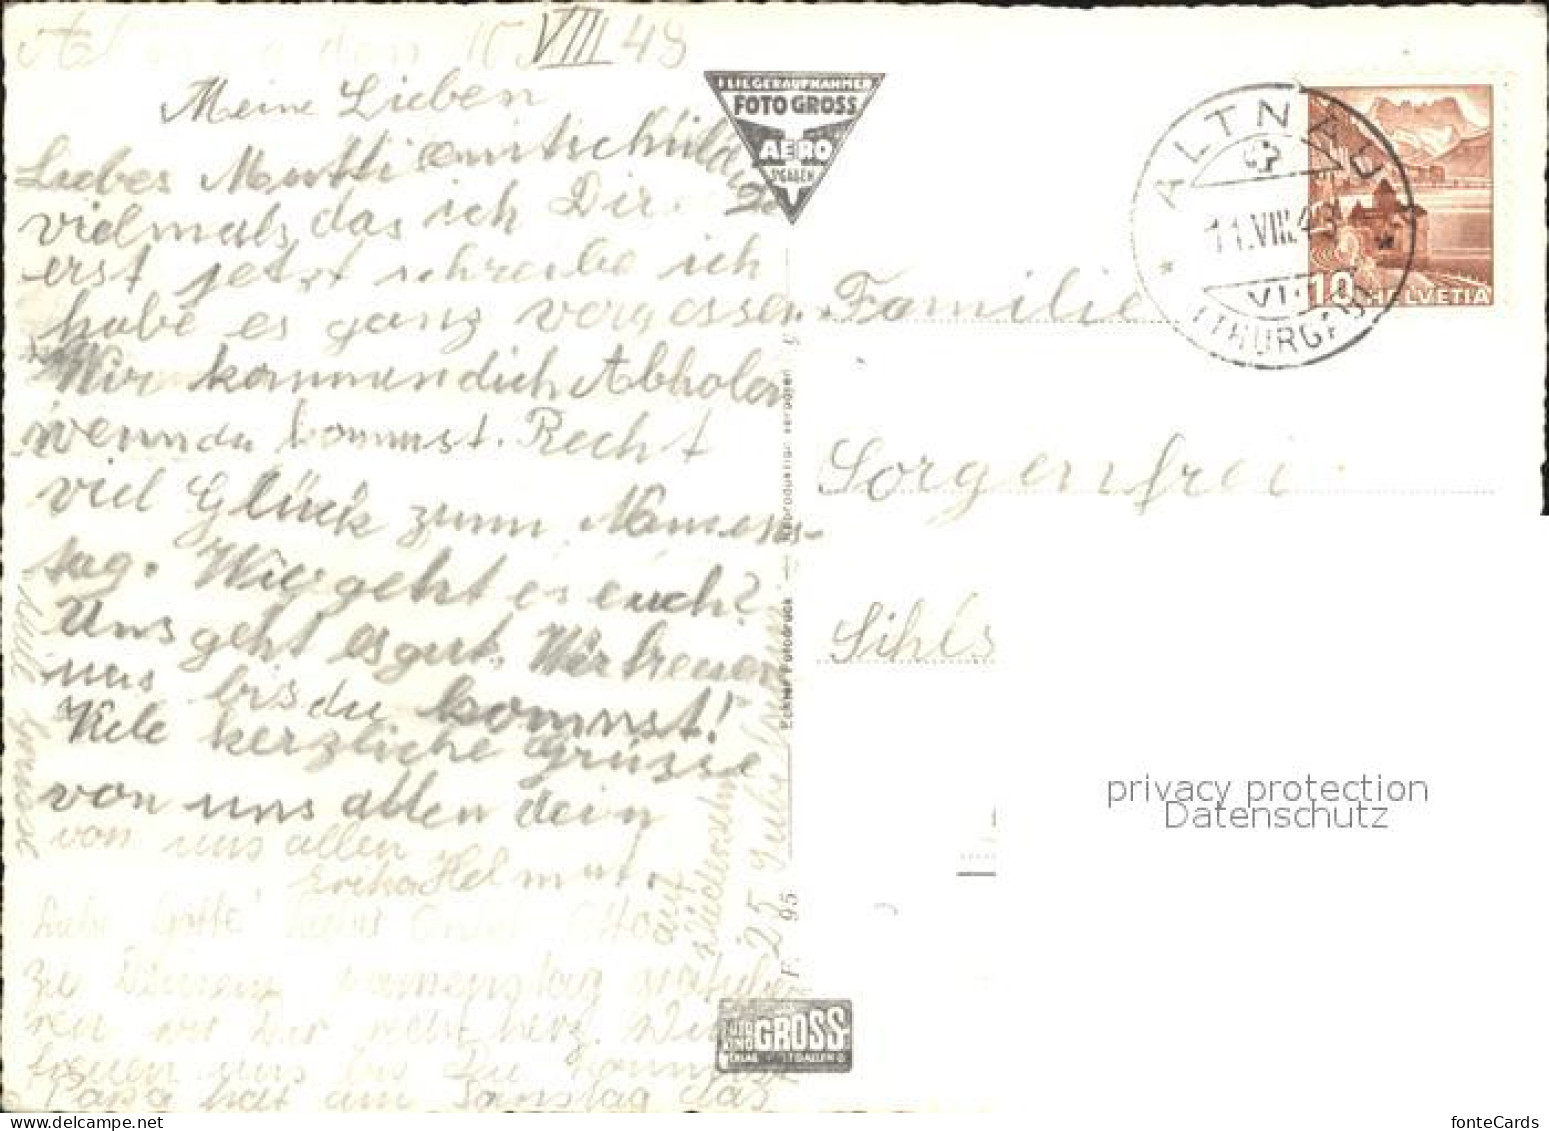 VIII 49
Meine Lieben
Liebes Mutti entschuldige
vielmals das ich Dir
erst jetzt schreibe ich
habe es ganz vergessen
Wir kommen dich Abholen
wenn du kommst. Recht
viel Glück zum Namens-
tag. Wie geht es euch?
Uns geht es gut. Wir freuen
uns bis du kommst!
Viele herzliche Grüsse
von uns allen dein
von uns allen
Erika Helmut.
Liebe Gotte Lieber Onkel Otto
zu Deinem Namenstag gratulie
ren wir Dir recht herz. Wir
freuen uns bis Du kommst
Papa hat am Samstag das
25 Jubiläum
auf Wiedersehn
FLIEGERAUFNAHMEN
FOTO GROSS
AERO
ST. GALLEN
F. 95
Echter Fotodruck — Reproduktion verboten
GROSS
VERLAG ST. GALLEN
ALTNAU
11.VIII.49
VI
(THURGAU)
10 HELVETIA
Familie
Sorgenfrei
Sihls
privacy protection
Datenschutz
fonteCards